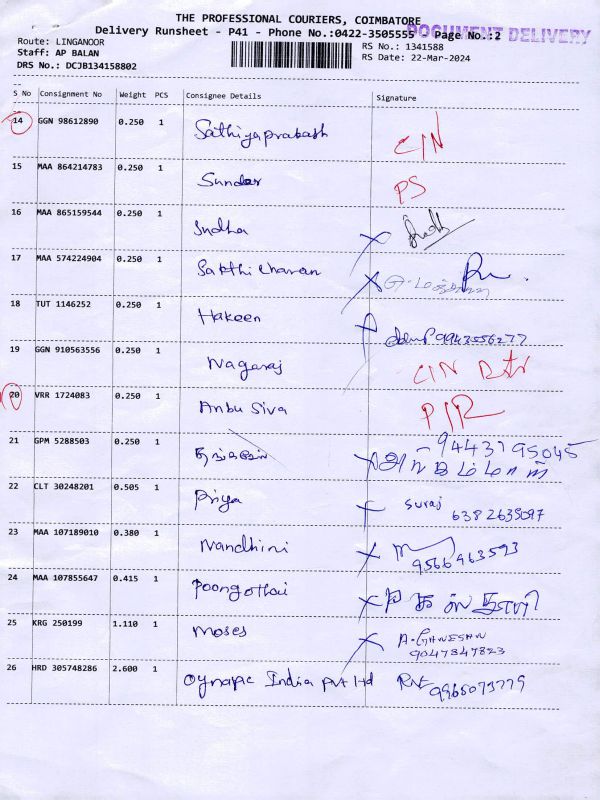 THE PROFESSIONAL COURIERS, COIMBATORE
Delivery Runsheet - P41 - Phone No.:0422-3505555 Page No.:2
DOCUMENT DELIVERY
Route: LINGANOOR
Staff: AP BALAN
DRS No.: DCJB134158802
RS No.: 1341588
RS Date: 22-Mar-2024
S No Consignment No Weight PCS Consignee Details Signature
14 GGN 98612890 0.250 1 Sathiyaprakash C/N
15 MAA 864214783 0.250 1 Sundar PS
16 MAA 865159544 0.250 1 Sudha
17 MAA 574224904 0.250 1 Sakthi charan
18 TUT 1146252 0.250 1 Hakeen 9943556277
19 GGN 910563556 0.250 1 Nagaraj C/N
20 VRR 1724083 0.250 1 Anbu Siva P/R
21 GPM 5288503 0.250 1 9443795045
22 CLT 30248201 0.505 1 Priya Suraj
6382639097
23 MAA 107189010 0.380 1 Nandhini
9566963593
24 MAA 107855647 0.415 1 Poongothai
25 KRG 250199 1.110 1 Moses A.GANESHN
9047347823
26 HRD 305748286 2.600 1 Oynapic India Pvt ltd 9965073779